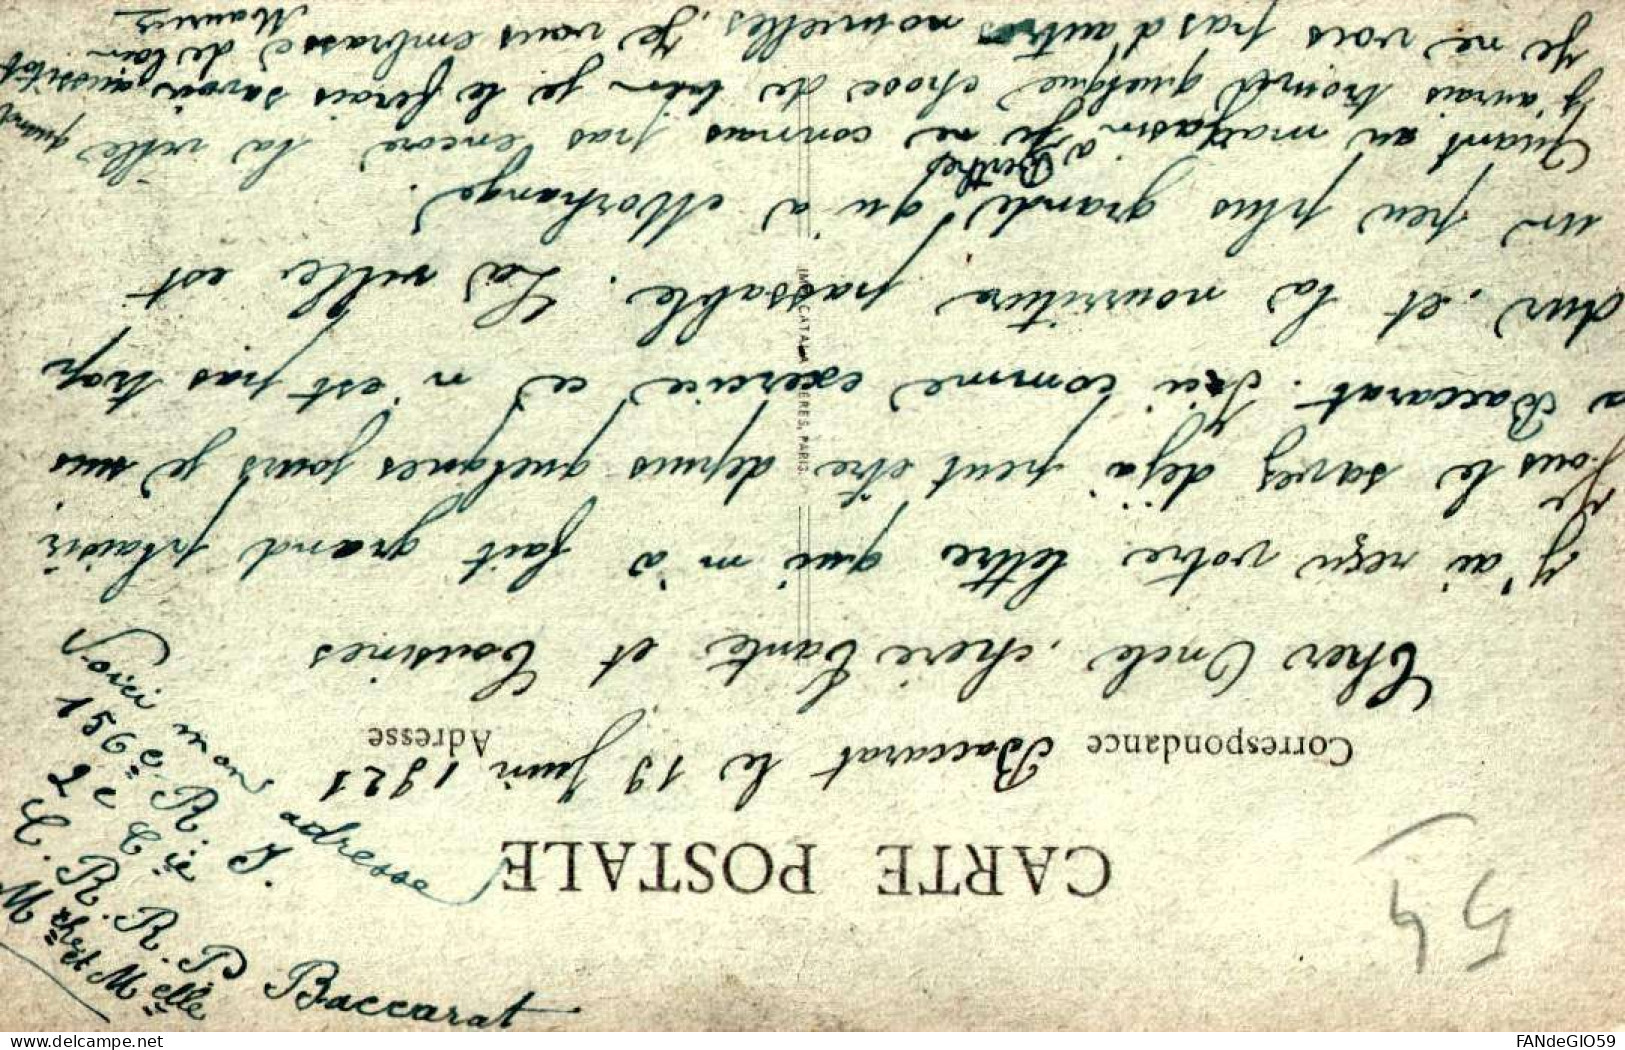 CARTE POSTALE
54
Correspondance
Adresse
Baccarat le 19 Juin 1921
Cher Oncle, chère Tante et Cousines
J'ai reçu votre lettre qui m'a fait grand plaisir.
Vous le savez déjà peut être depuis quelques jours je suis
a Baccarat. Ici comme exercice ce n'est pas trop
dur, et la nourriture passable. La ville est
un peu plus grande qu'à Morhange.
Quant au magasin à Berthe je ne connais pas encore la ville quand
j'aurais trouvé quelque chose de bien je le ferais savoir aussitôt
Je ne vois pas d'autres nouvelles, je vous embrasse de loin
Maurice
Voici mon adresse
159e R. I.
2e Cie
R. R. P Baccarat
M et Melle
IMP. CATALA FRÈRES, PARIS.
FANdeGIO59